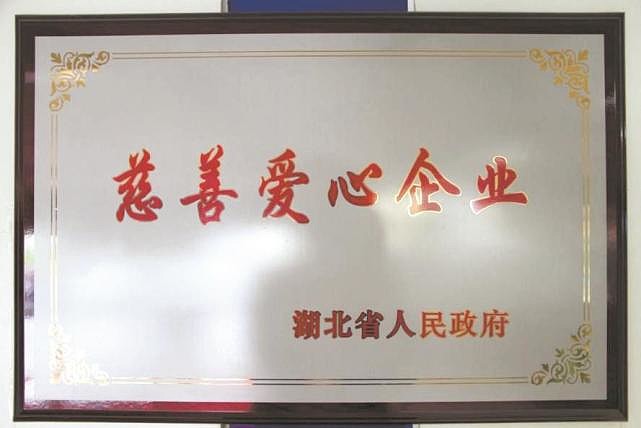 慈善爱心企业
湖北省人民政府